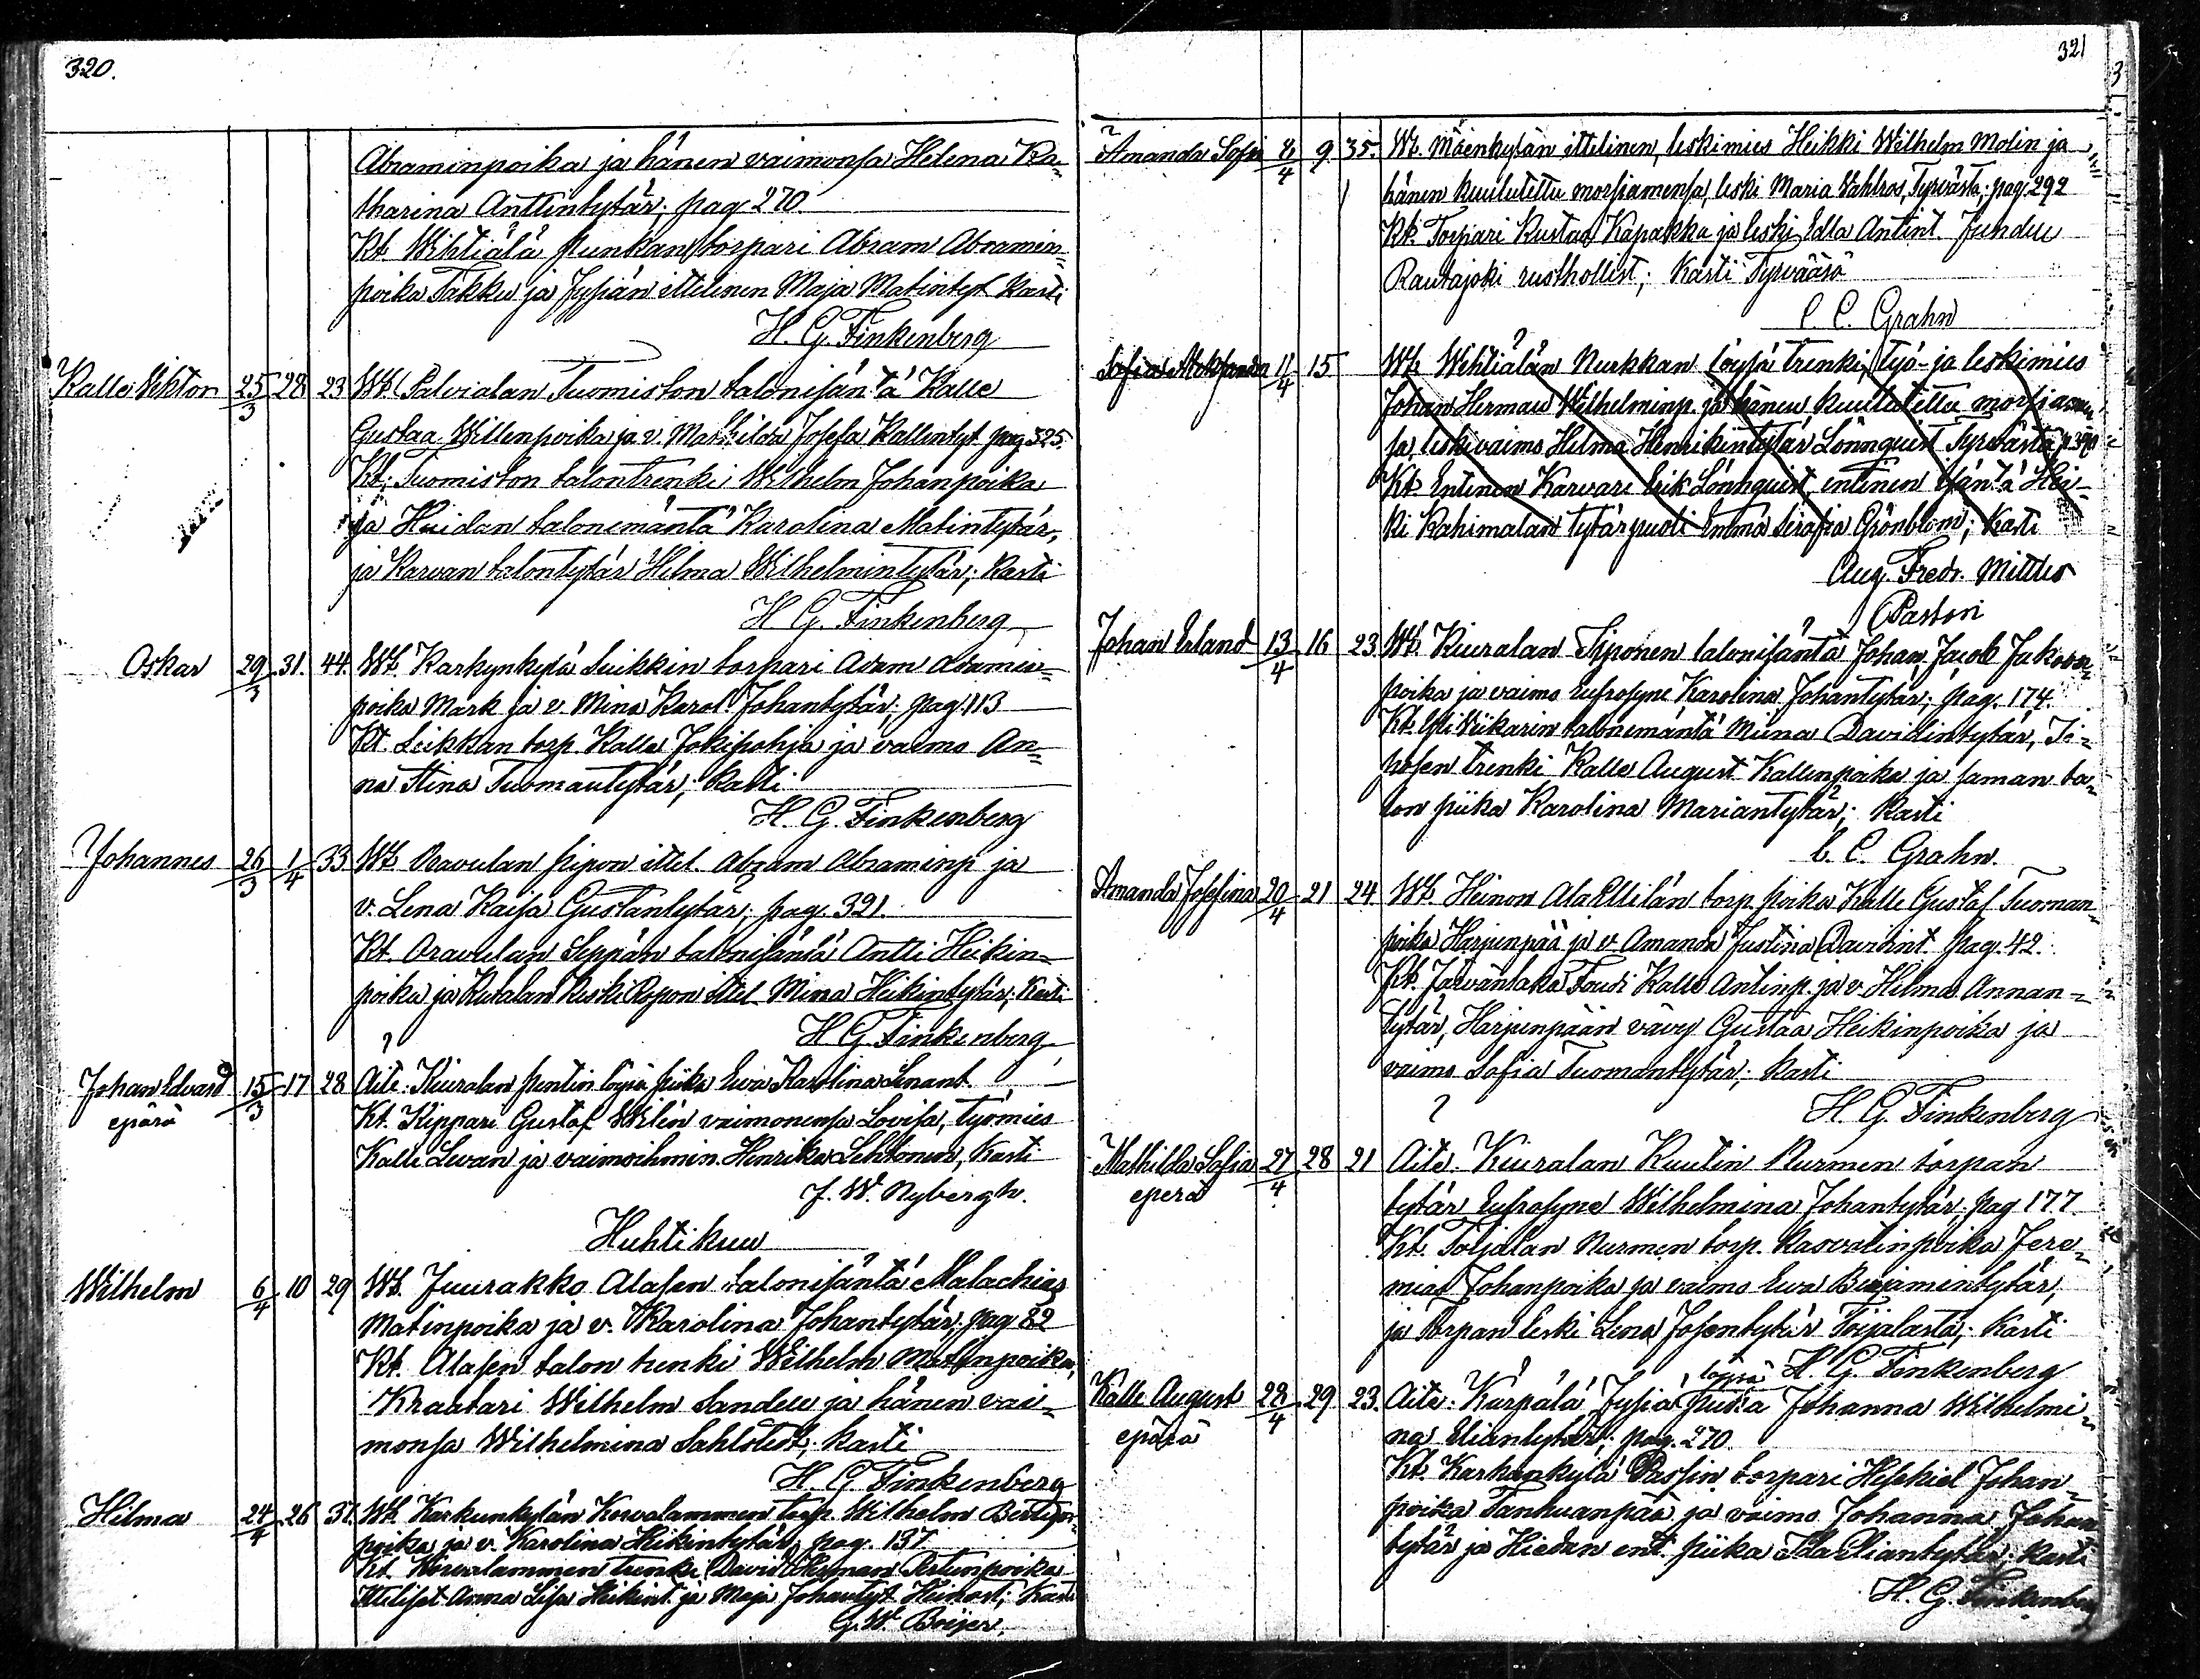 320.
Abraminpoika ja hänen vaimonsa Helena Ka-
tharina Antintytär; pag 270.
Kt. Wihtiälä Punkan torpari Abram Abramin-
poika Takku ja Jysiän ittelinen Maja Matintyt. Kasti
H. G. Finkenberg
Kalle Viktor 25/3 28 23 Wh. Palvialan Tuomiston talonisäntä Kalle
Gustaa Willenpoika ja v. Mathilda Josefa Kallentyt. pag 325.
Kt. Tuomiston talontrenki Wilhelm Johanpoika
ja Heidan talonemäntä Karolina Matintytär,
ja Karvan talontytär Hilma Wilhelmintytär; Kasti
H. G. Finkenberg
Oskar 29/3 31. 44. Wh. Karkunkylä Leikkin torpari Adam Adamin-
poika Mark ja v. Mina Karol. Johantytär; pag. 113
Kt. Leikkan torp. Kalle Jokipohja ja vaimo An-
na Stina Tuomantytär; Kasti
H. G. Finkenberg
Johannes 26/3 1/4 33 Wh. Oravulan Piipon ittel. Abram Abraminp. ja
v. Lena Kaisa Gustantytär; pag. 391.
Kt. Oravulan Seppän talonisäntä Antti Heikin-
poika ja Kutalan Keski Ropon ittel. Mina Heikintytär; Kasti
H. G. Finkenberg
Johan Edvard 15/3 17 28 Äite. Kiuralan Pentin löysä piika Eva Karolina Senant.
epärä Kt. Kippari Gustaf Wilén vaimonensa Lovisa, Työmies
Kalle Levan ja vaimoihmin. Henrika Lehtonen, Kasti
J. W. Nybergh.
Huhtikuu
Wilhelm 6/4 10 29 Wh. Juurakko Alasen talonisäntä Malachias
Matinpoika ja v. Karolina Johantytär; pag 82
Kt. Alasen talon trenki Wilhelm Matinpoika,
Kraatari Wilhelm Sandell ja hänen vai-
monsa Wilhelmina Sahlstedt; Kasti
H. G. Finkenberg
Hilma 24/4 26 37. Wh. Karkunkylän Korvalammen torp. Wilhelm
poika ja v. Karolina Heikintytär, pag. 137
Kt. Korvalammen trenki David Herman Pertunpoika
Itteliset Anna Lisa Heikint. ja Maja Johantyt. Heinost; Kasti
G. W. Boijer.
321
Amanda Sofia 8/4 9 35. Wh. Mäenkylän ittelinen, leskimies Heikki Wilhelm Molin ja
hänen kuulutettu morsiamensa, leski Maria Vahlros, Tyrväästä; pag. 292
Kt. Torpari Kustaa Kapakka ja leski Edla Antint. Junduu
Rautajoki rusthollist; Kasti Tyrvääsä
C. C. Grahn
Sofia Aleksandra 11/4 15 Wh. Wihtiälän Nurkkan löysä trenki, työ- ja leskimies
Johan Herman Wilhelminp. ja hänen kuulutettu morsiamen-
sa, leskivaimo Helma Henrikintytär Lönnquist Tyrväästä p. 390
Kt. Entinen Karvari Erik Lönnquist, entinen isäntä Hei-
ki Rahimalan tytärpuoli Emma Serafia Grönblom; Kasti
Aug. Fredr. Mittler
Pastori
Johan Erland 13/4 16 23 Wh. Kiuralan Siponen talonisäntä Johan Jacob Jakovn-
poika ja vaimo Eufrosyne Karolina Johantytär; pag. 174.
Kt. Yli Viikarin talonemäntä Miina Davidintytär, Si-
posen trenki Kalle August Kallenpoika ja saman ta-
lon piika Karolina Mariantytär; Kasti
C. C. Grahn.
Amanda Josefina 20/4 21 24 Wh. Heinon Ala Ellilän torp. poika Kalle Gustaf Tuoman-
poika Harjunpää ja v. Amanda Justina Davidint. pag. 42.
Kt. Järväntaka Fouri Kalle Antinp. ja v. Helma Annan-
tytär, Harjunpään vävy Gustaa Heikinpoika ja
vaimo Sofia Tuomantytär; Kasti
H. G. Finkenberg
Mathilda Sofia 27/4 28 21 Äite. Kiuralan Kuutin Nurmen torpan
eperä tytär Eufrosyne Wilhelmina Johantytär, pag 177
Kt. Toijalan Nurmen torp. Kasvatinpoika Jere-
mias Johanpoika ja vaimo Eva Benjamintytär,
ja torpan leski Lena Josentytär Toijalasta; Kasti
H. G. Finkenberg
Kalle August 28/4 29 23. Äite. Kärpälä Jysiä löysä piika Johanna Wilhelmi-
epärä na Eliantytär; pag. 270.
Kt. Karkunkylä Passin torpari Heskiel Johan-
poika Tanhuanpää ja vaimo Johanna Johan
tytär ja Hiedan ent. piika Ida Eliantytär; Kasti
H. G. Finkenberg